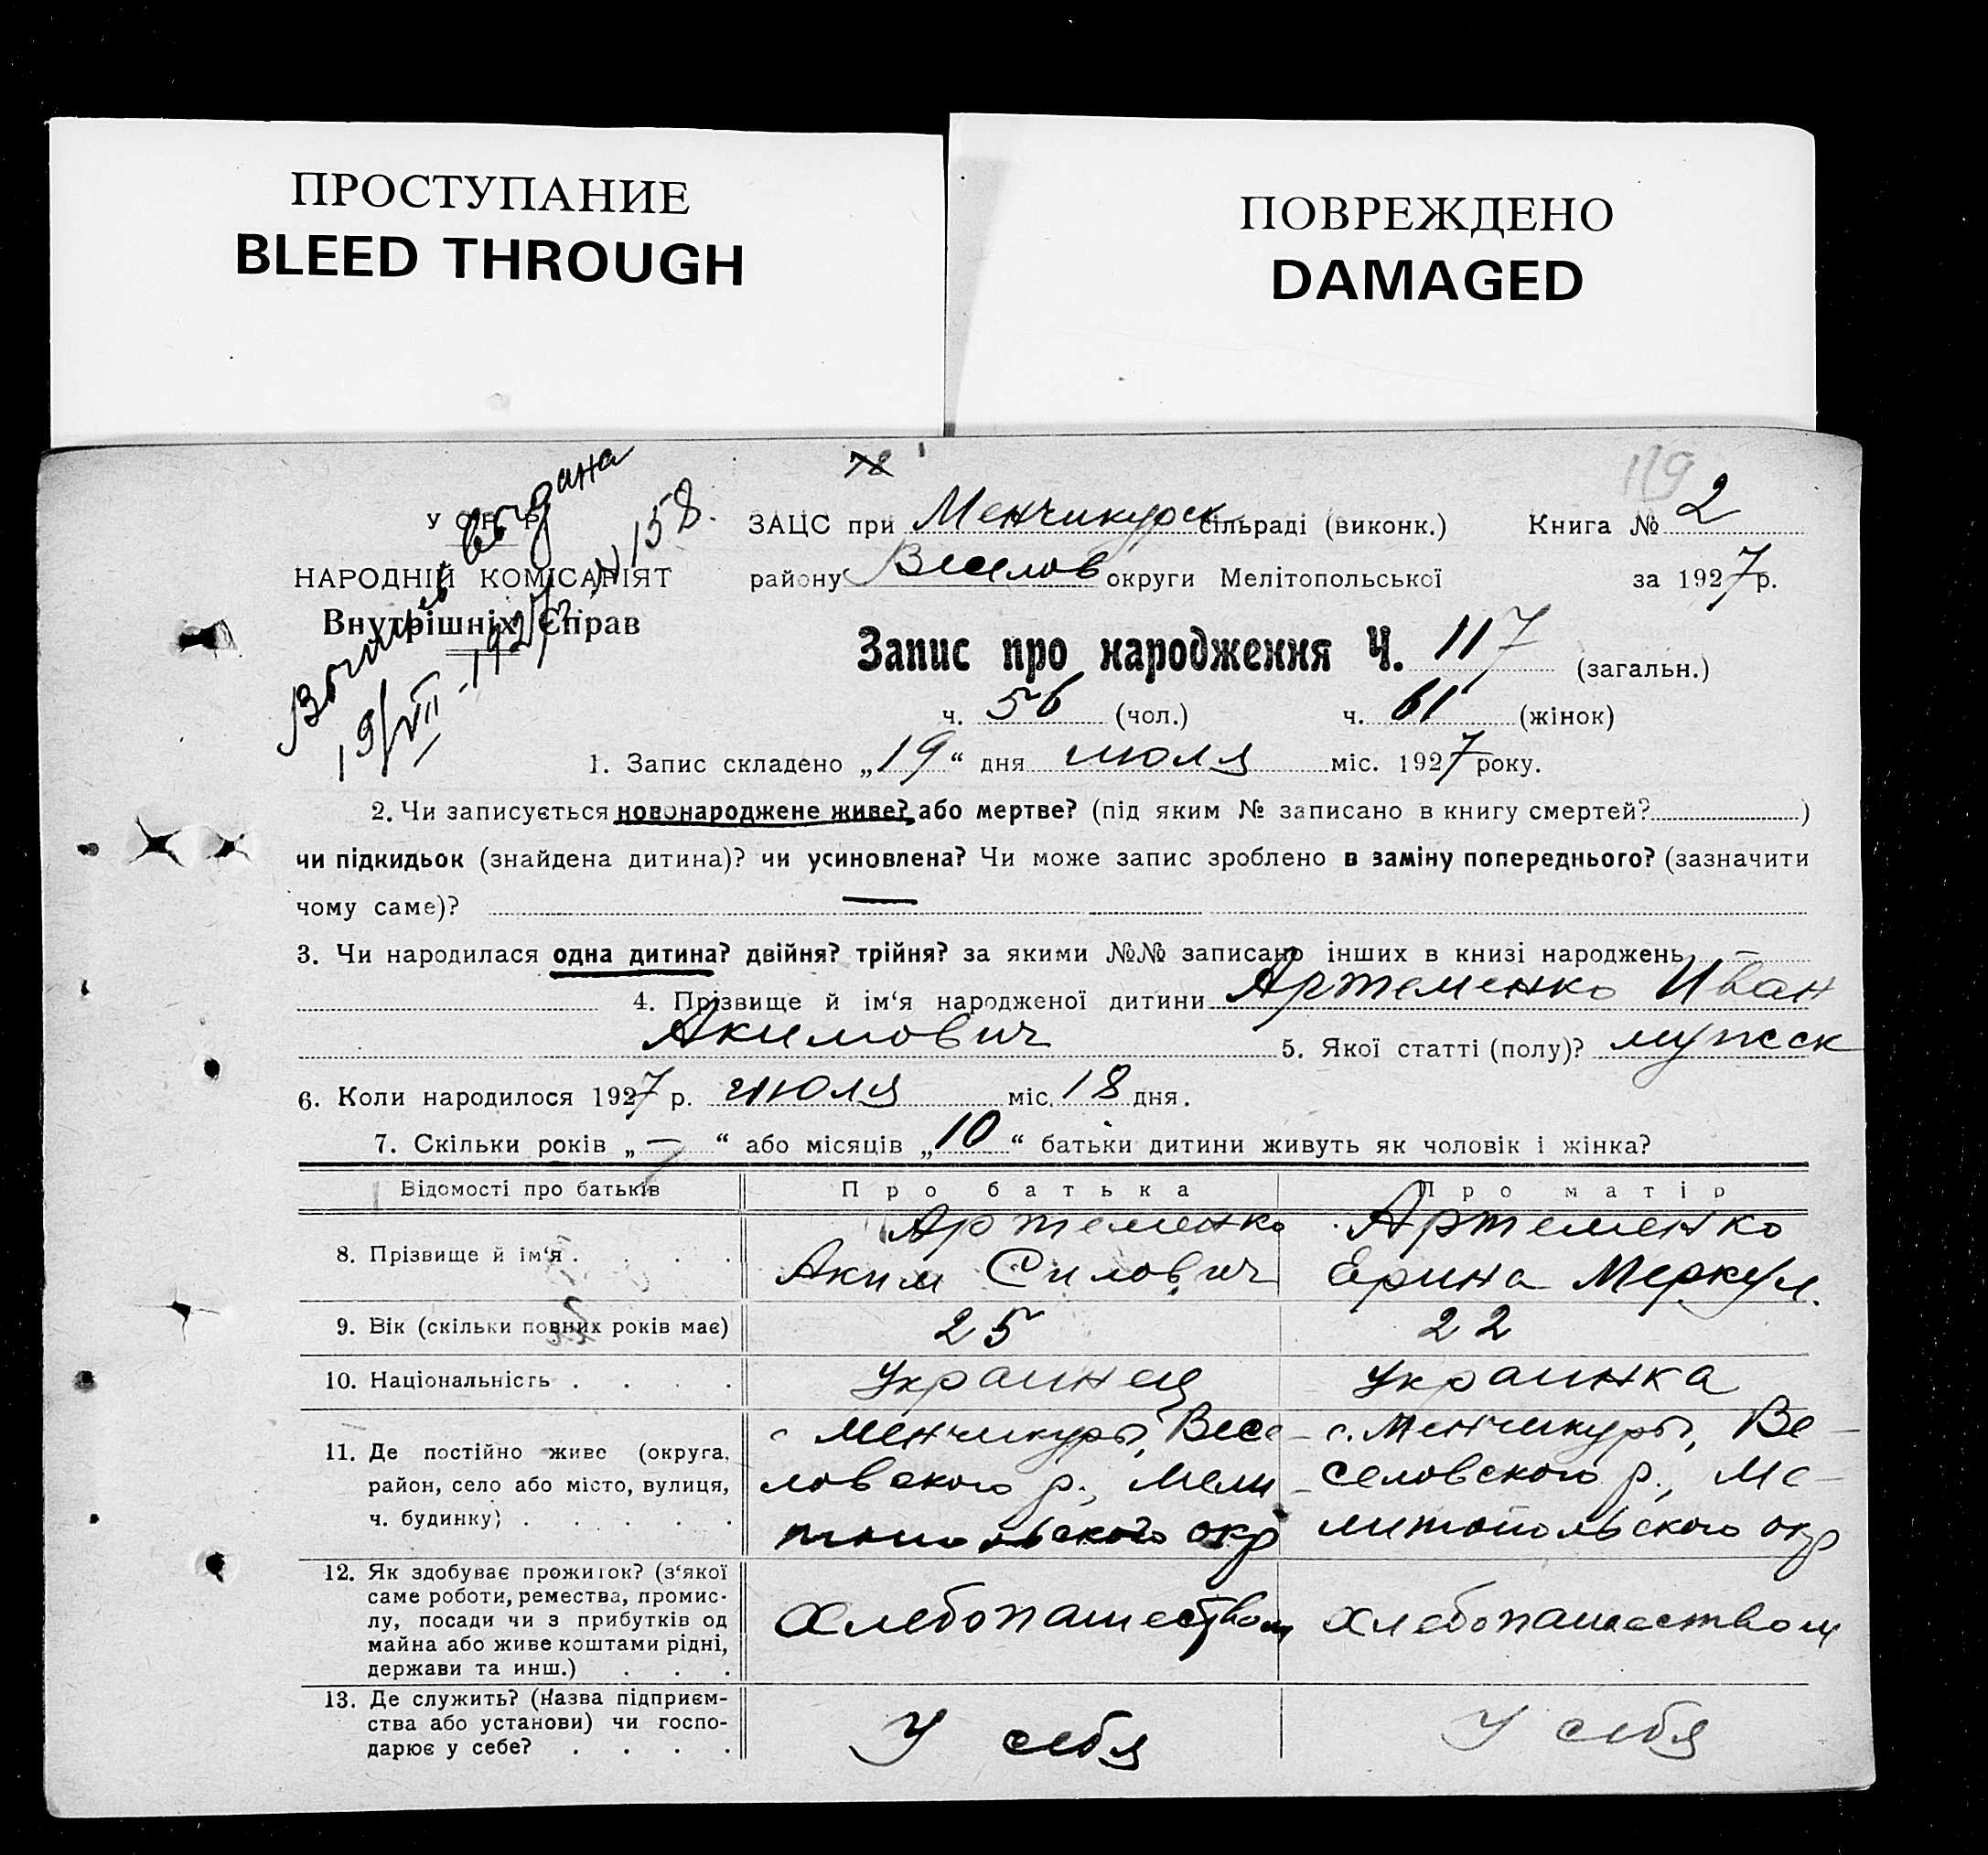 ПРОСТУПАНИЕ
BLEED THROUGH
ПОВРЕЖДЕНО
DAMAGED
119
У С Р Р
НАРОДНІЙ КОМІСАРІЯТ
Внутрішніх Справ
выдана
19/VII-1927 N 158.
ЗАЦС при Менчикурск сільраді (виконк.) Книга № 2
району Веселов округи Мелітопольської за 1927 р.
Запис про народження Ч. 117 (загальн.)
ч. 56 (чол.) ч. 61 (жінок)
1. Запис складено „19“ дня июля міс. 1927 року.
2. Чи записується новонароджене живе? або мертве? (під яким № записано в книгу смертей? )
чи підкидьок (знайдена дитина)? чи усиновлена? Чи може запис зроблено в заміну попереднього? (зазначити
чому саме)? —
3. Чи народилася одна дитина? двійня? трійня? за якими №№ записано інших в книзі народжень
4. Прізвище й ім‘я народженої дитини Артеменко Иван
Акимович 5. Якої статті (полу)? мужск
6. Коли народилося 1927 р. июля міс. 18 дня.
7. Скільки років „—“ або місяців „10“ батьки дитини живуть як чоловік і жінка?
Відомості про батьків Про батька Про матір
8. Прізвище й ім‘я . . . . Артеменко Аким Силович Артеменко Ерина Меркул.
9. Вік (скільки повних років має) 25 22
10. Національність . . . . Украинец Украинка
11. Де постійно живе (округа,
район, село або місто, вулиця,
ч. будинку) . . . . .
с Менчикуры, Весе-
ловского р., Мели-
топольского окр
с. Менчикуры, Ве-
селовского р., Ме-
литопольского окр
12. Як здобуває прожиток? (з‘якої
саме роботи, ремества, промис-
лу, посади чи з прибутків од
майна або живе коштами рідні,
держави та инш.) . . .
Хлебопашеством хлебопашеством
13. Де служить? (Назва підприєм-
ства або установи) чи госпо-
дарює у себе? . . . .
У себя У себя